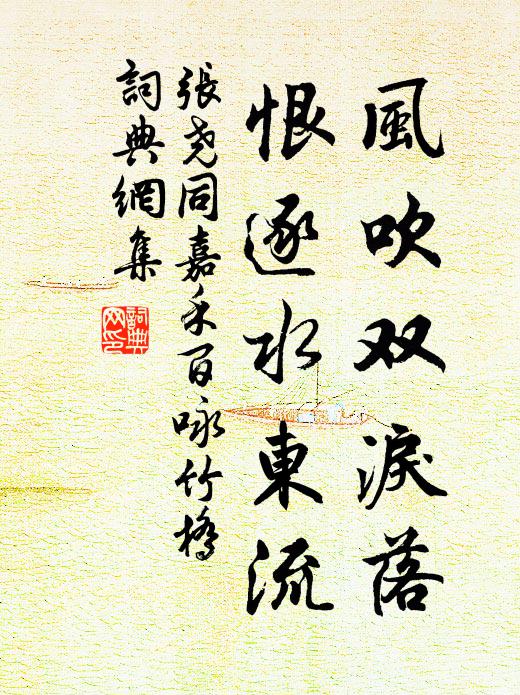 風吹双淚落
恨逐水東流
張尧同嘉禾百咏竹橋
詞典網集
詞典
网印